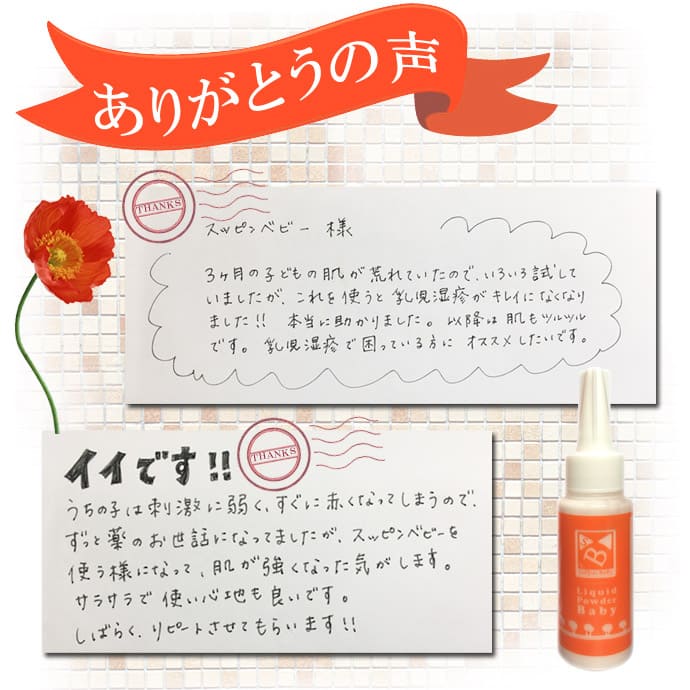 ありがとうの声
THANKS
スッピンベビー 様
3ヶ月の子どもの肌が荒れていたので、いろいろ試して
いましたが、これを使うと乳児湿疹がキレイになくなり
ました!! 本当に助かりました。以降は肌もツルツル
です。乳児湿疹で困っている方に オススメしたいです。
THANKS
イイです!!
うちの子は刺激に弱く、すぐに赤くなってしまうので、
ずっと薬のお世話になってましたが、スッピンベビーを
使う様になって、肌が強くなった気がします。
サラサラで使い心地も良いです。
しばらく、リピートさせてもらいます!!
B
Liquid
Powder
Baby